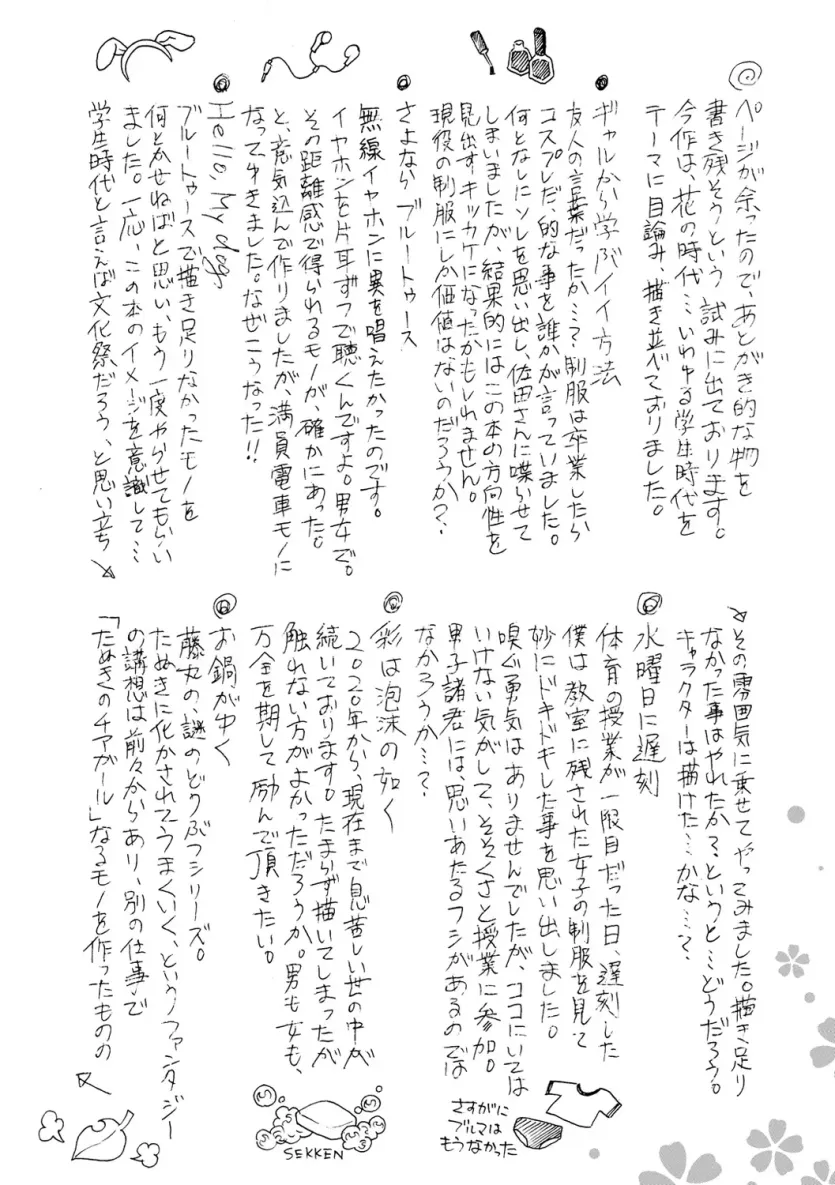 ◎ページが余ったので、あとがき的な物を
書き残そうという試みに出ております。
今作は、花の時代…いわゆる学生時代を
テーマに目論み、描き並べておりました。
ギャルから学ぶイイ方法
友人の言葉だったか…？制服は卒業したら
コスプレだ、的な事を誰かが言っていました。
何となしにソレを思い出し、佐田さんに喋らせて
しまいましたが、結果的にはこの本の方向性を
見出すキッカケになったかもしれません。
現役の制服にしか価値はないのだろうか？
さよならブルートゥース
無線イヤホンに異を唱えたかったのです。
イヤホンを片耳ずつで聴くんですよ。男女で。
その距離感で得られるモノが、確かにあった。
と、意気込んで作りましたが、満員電車モノに
なってゆきました。なぜこうなった!!
Hello, My dog
ブルートゥースで描き足りなかったモノを
何とかせねばと思い、もう一度やらせてもらい
ました。一応、この本のイメージを意識して…
学生時代と言えば文化祭だろう、と思い立ち
その雰囲気に乗せてやってみました。描き足り
なかった事はやれたか？、というと…どうだろう。
キャラクターは描けた…かな…？
水曜日に遅刻
体育の授業が一限目だった日、遅刻した
僕は教室に残された女子の制服を見て
妙にドキドキした事を思い出しました。
嗅ぐ勇気はありませんでしたが、ココにいては
いけない気がして、そそくさと授業に参加。
男子諸君には、思いあたるフシがあるのでは
なかろうか…？
さすがに
ブルマは
もうなかった
彩は泡沫の如く
2020年から、現在まで息苦しい世の中が
続いております。たまらず描いてしまったが
触れない方がよかっただろうか。男も女も、
万全を期して励んで頂きたい。
SEKKEN
お鍋がゆく
藤丸の、謎のどうぶつシリーズ。
たぬきに化かされてうまくいく、というファンタジー
の講想は前々からあり、別の仕事で
「たぬきのチアガール」なるモノを作ったものの